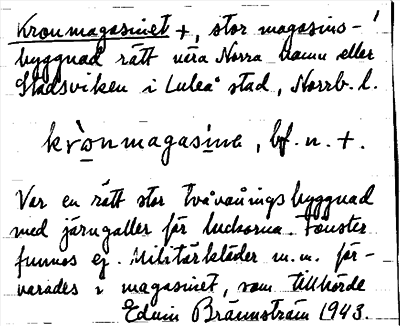 Kronmagasinet +, stor magasins-
byggnad rätt nära Norra hamn eller
Stadsviken i Luleå stad, Norrb. l.
kronmagasine, bf. n. +.
Var en rätt stor tvåvåningsbyggnad
med järngaller för luckorna. Fönster
funnos ej. Militärkläder m.m. för-
varades i magasinet, som tillhörde
Edvin Brännström 1943.